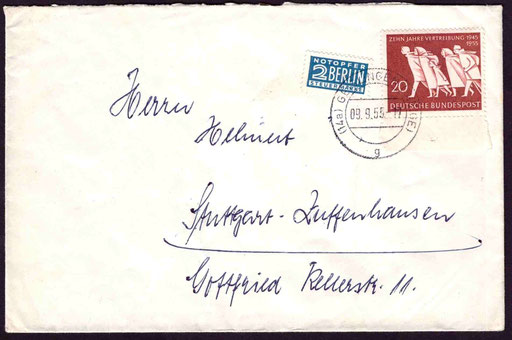 ZEHN JAHRE VERTREIBUNG 1945
1955
20
DEUTSCHE BUNDESPOST
NOTOPFER
2 BERLIN
STEUERMARKE
(14a)
09.9.55
g
Herrn
Helmert
Stuttgart-Zuffenhausen
Gottfried Kellerstr. 11.